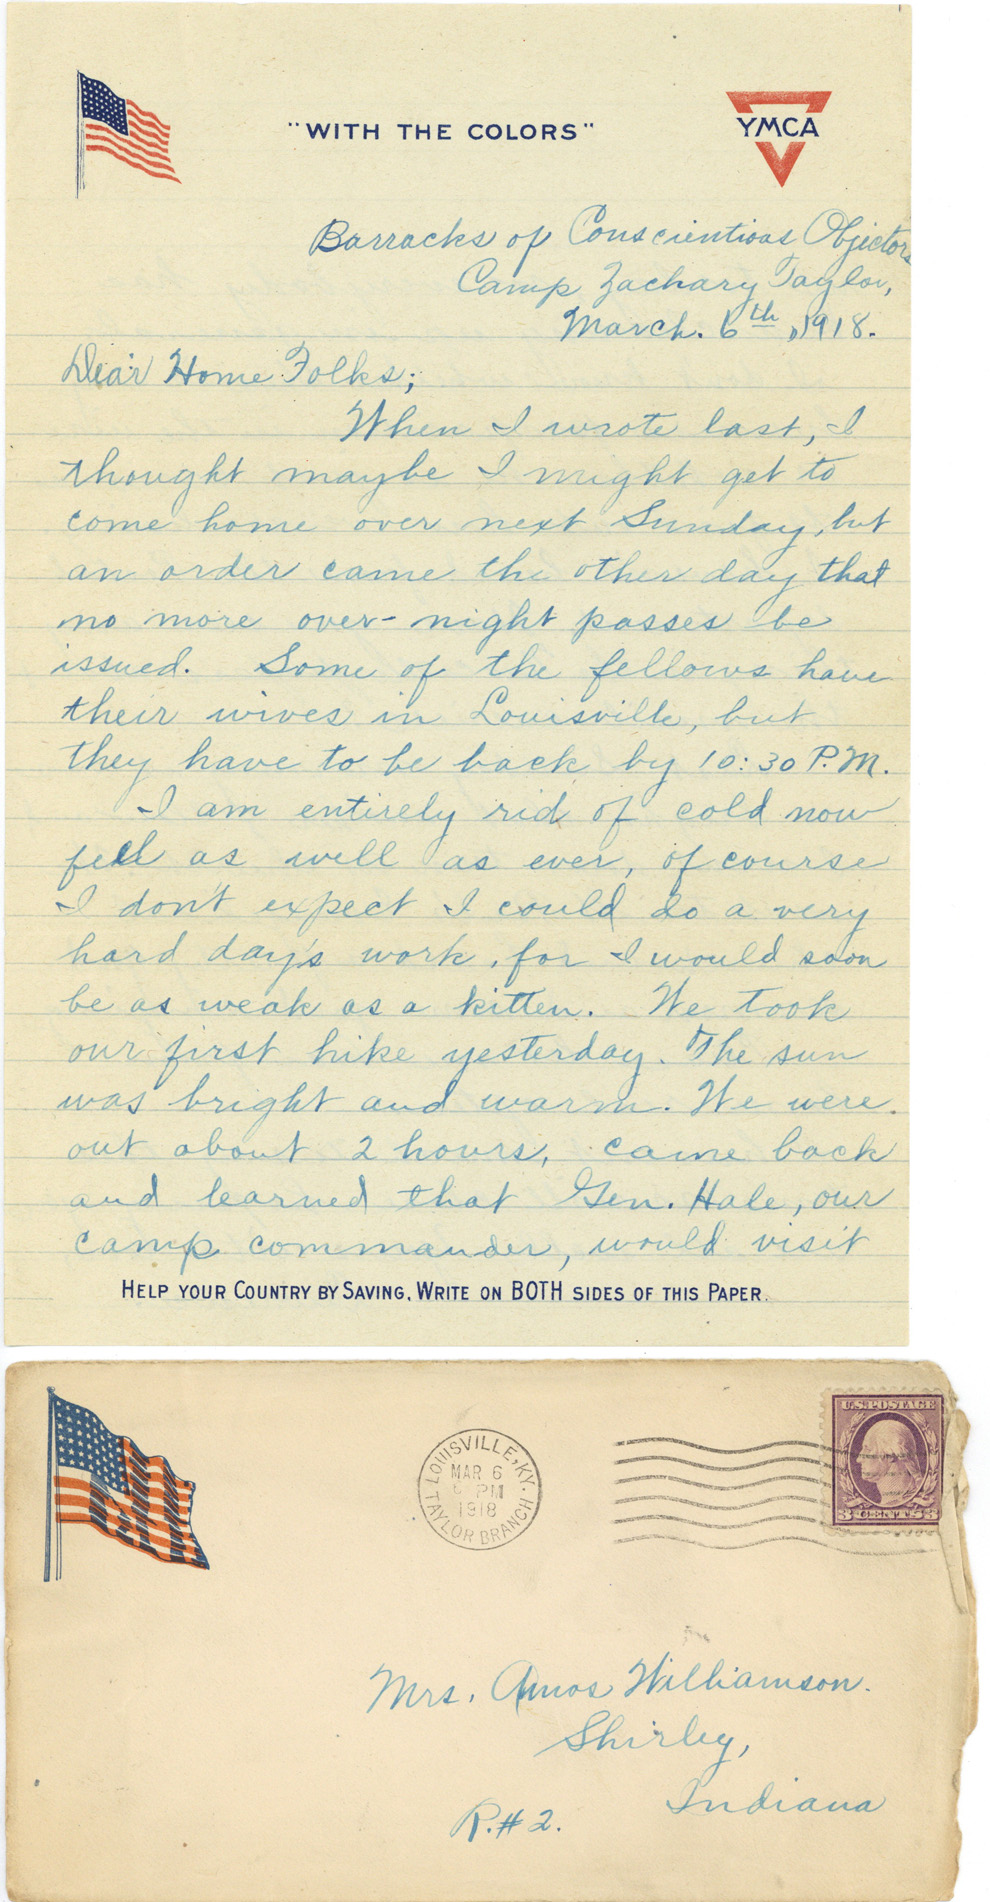 "WITH THE COLORS"
YMCA
Barracks of Conscientious Objectors
Camp Zachary Taylor,
March. 6th, 1918.
Dear Home Folks;
When I wrote last, I
thought maybe I might get to
come home over next Sunday, but
an order came the other day that
no more over-night passes be
issued. Some of the fellows have
their wives in Louisville, but
they have to be back by 10:30 P.M.
I am entirely rid of cold now
feel as well as ever, of course
I don't expect I could do a very
hard day's work, for I would soon
be as weak as a kitten. We took
our first hike yesterday. The sun
was bright and warm. We were.
out about 2 hours, came back
and learned that Gen. Hale, our
camp commander, would visit
HELP YOUR COUNTRY BY SAVING. WRITE ON BOTH SIDES OF THIS PAPER.
LOUISVILLE, KY.
MAR 6
PM
1918
TAYLOR BRANCH
U.S. POSTAGE
3 CENTS 3
Mrs. Amos Williamson.
Shirley,
Indiana
R.#2.